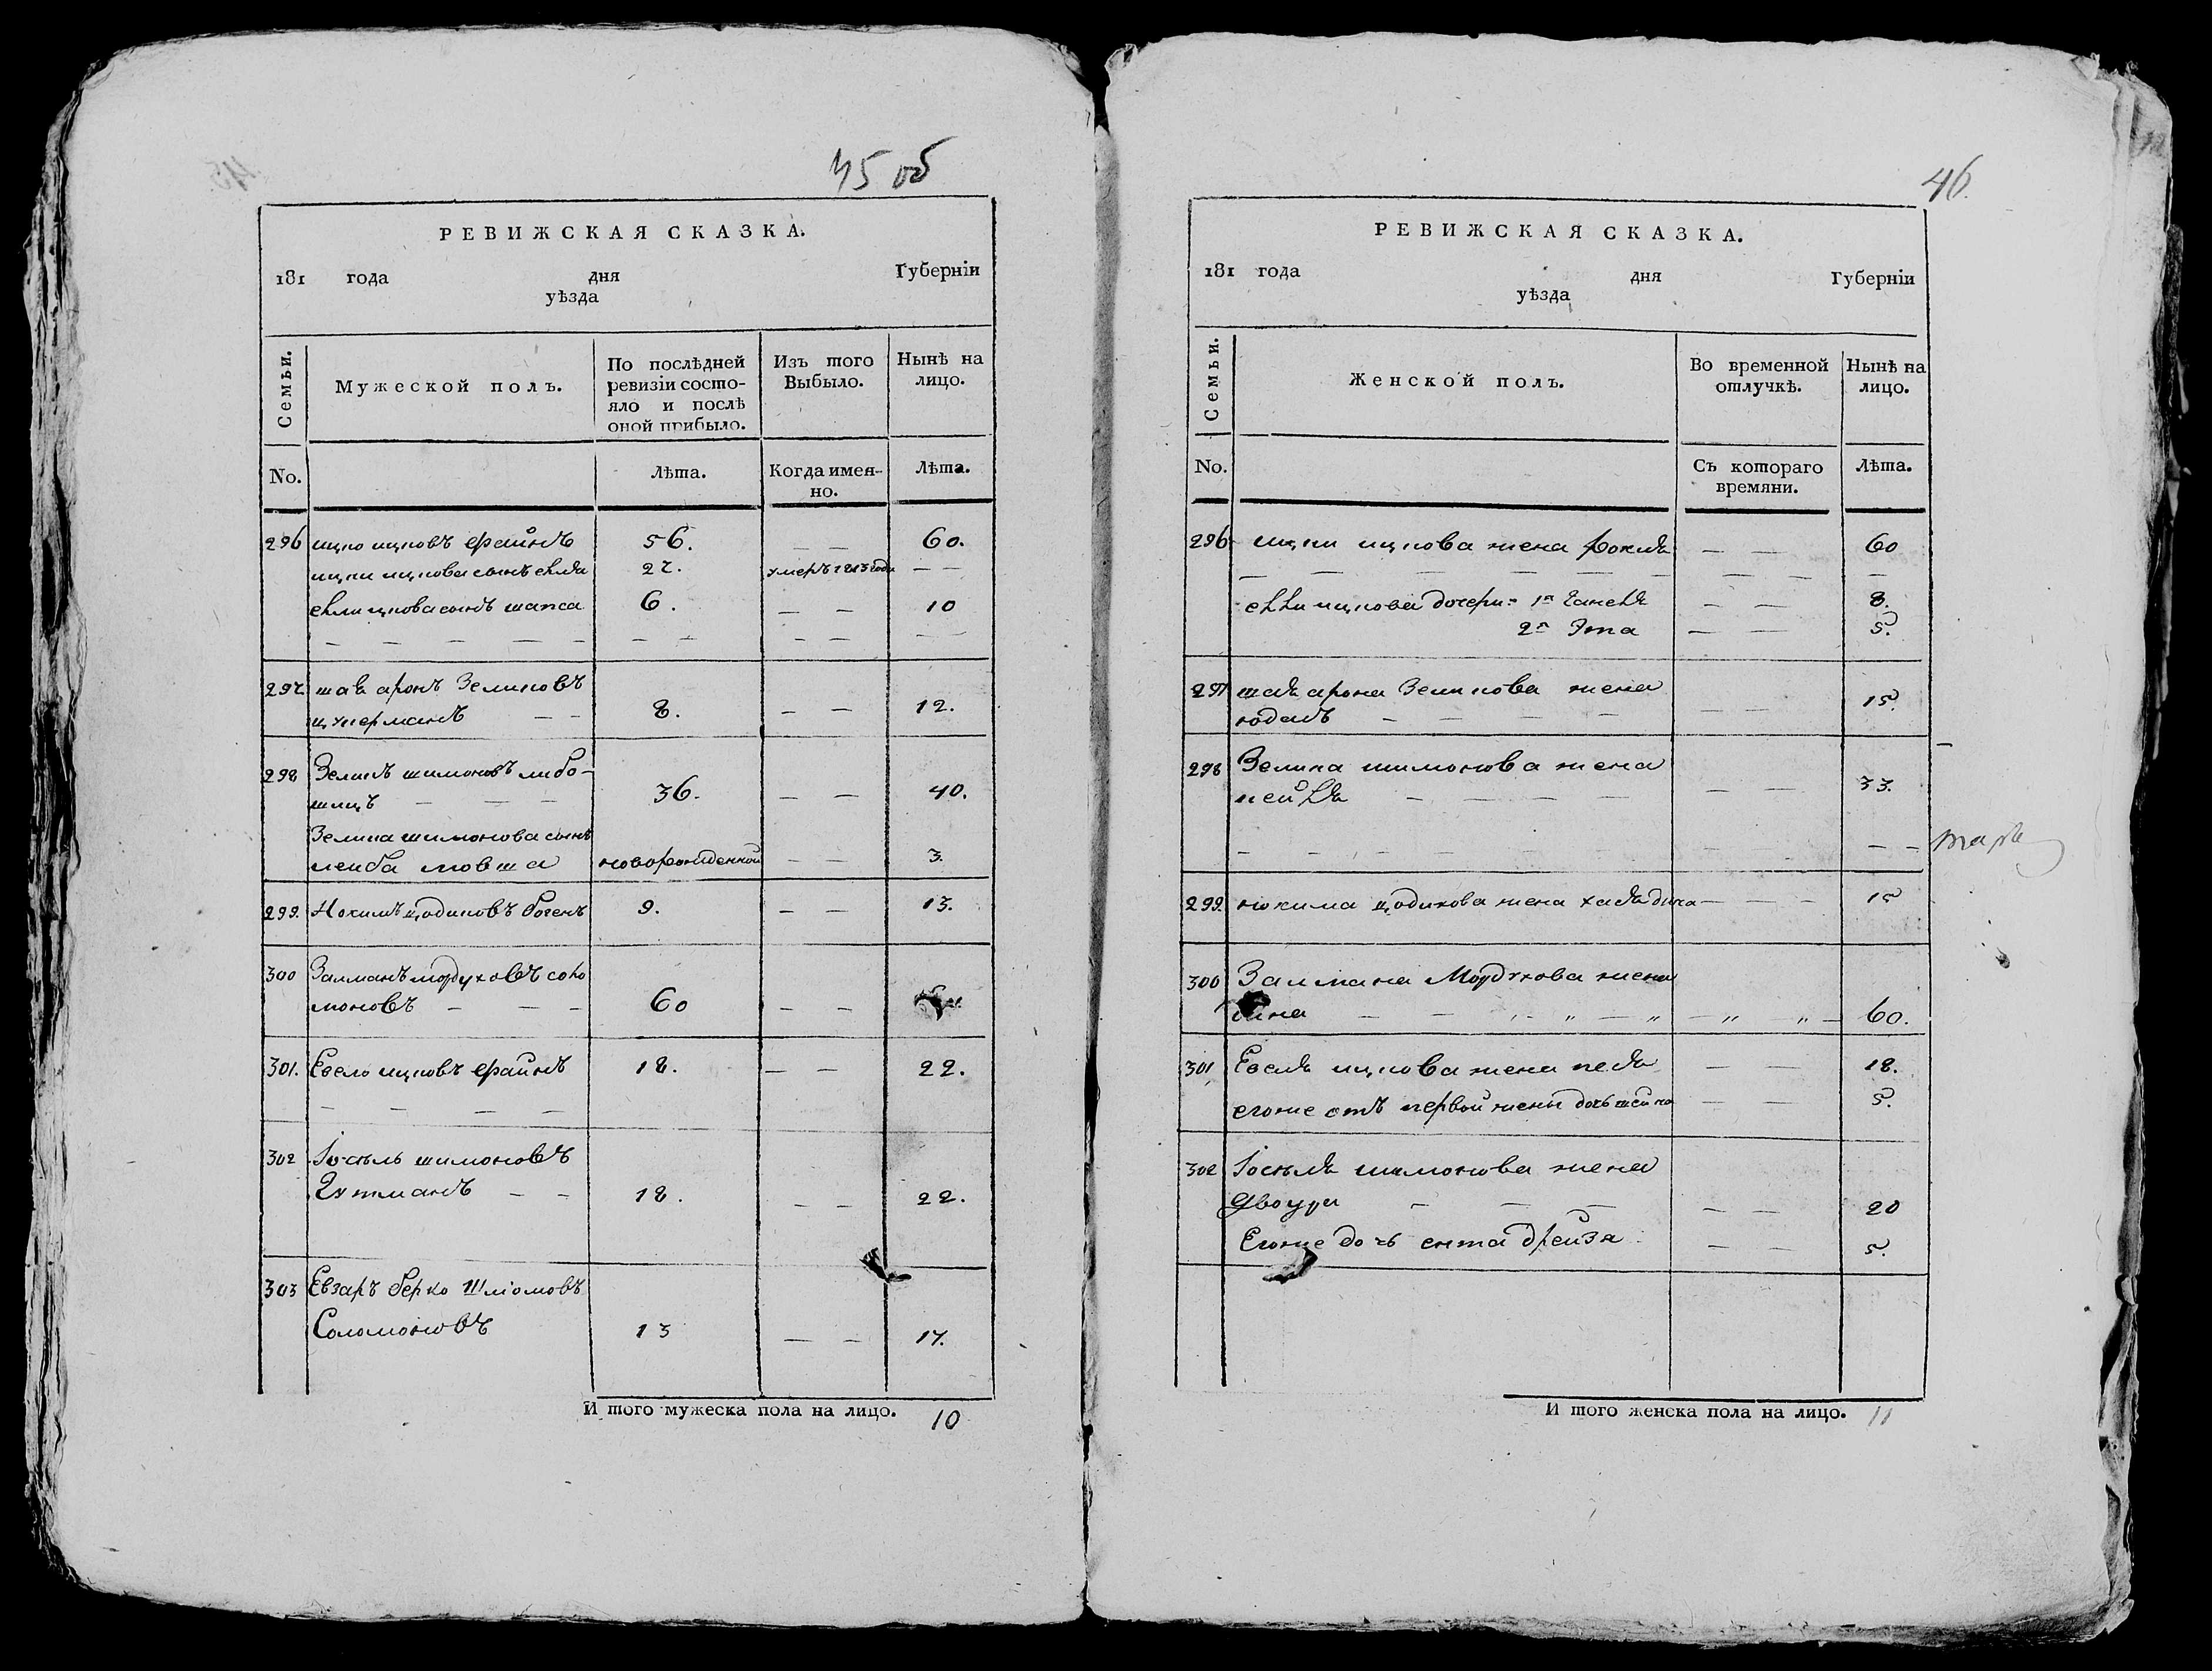 45 об
РЕВИЖСКАЯ СКАЗКА.
181 года дня Губерніи
уѣзда
Семьи.
Мужеской полъ.
По послѣдней ревизіи состо-
яло и послѣ
оной прибыло.
Изъ того Выбыло.
Нынѣ на лицо.
No.
Лѣта.
Когда имен-
но.
Лѣта.
296 ицко ицковъ файнъ 56. — — 60.
ицки ицкова сынъ евля 27. умеръ 1813 года — —
евли ицкова сынъ шапса 6. — — 10
297. шая аронъ Зеликовъ
цукерманъ — — 8. — — 12.
298 Зеликъ шимоновъ либо-
шицъ — — — 36. — — 40.
Зелика шимонова сынъ
лейба мовша новорожденной — — 3.
299. Нохимъ цодиковъ богенъ 9. — — 13.
300 Залманъ мордуховъ соло
моновъ — — — 60 — —
301. Евело ицковъ файнъ 18. — — 22.
302 Іосель шимоновъ
Гутманъ — — 18. — — 22.
303 Евзаръ берко Шліомовъ
Соломоновъ 13 — — 17.
И того мужеска пола на лицо. 10
46.
РЕВИЖСКАЯ СКАЗКА.
181 года дня Губерніи
уѣзда
Семьи.
Женской полъ.
Во временной отлучкѣ.
Нынѣ на лицо.
No.
Съ котораго времяни.
Лѣта.
296 ицки ицкова жена рохля — — 60
евли ицкова дочери: 1я ганеля — — 8.
2я Эта — — 5.
297 шая арона Зеликова жена
юдась — — — — — — 15.
298 Зелика шимонова жена
пейля — — — — — — 33.
299. нохима цодикова жена хая дина — — — 15
300 Залмана Мордухова жена
60.
301 Евеля ицкова жена песя — — 18.
егоже отъ первой жены дочь шейна — — 5.
302 Іоселя шимонова жена
двойра — — — — — 20
Егоже дочь ента дрейза — — 5.
И того женска пола на лицо. 11